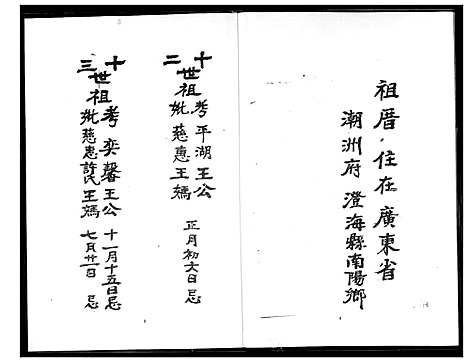 祖厝住在廣東省
潮洲府澄海縣南陽鄉
十二世祖考平湖王公
妣慈惠王媽
正月初六日忌
十三世祖考奕馨王公十一月十五日忌
妣慈惠許氏王媽七月廿一日忌